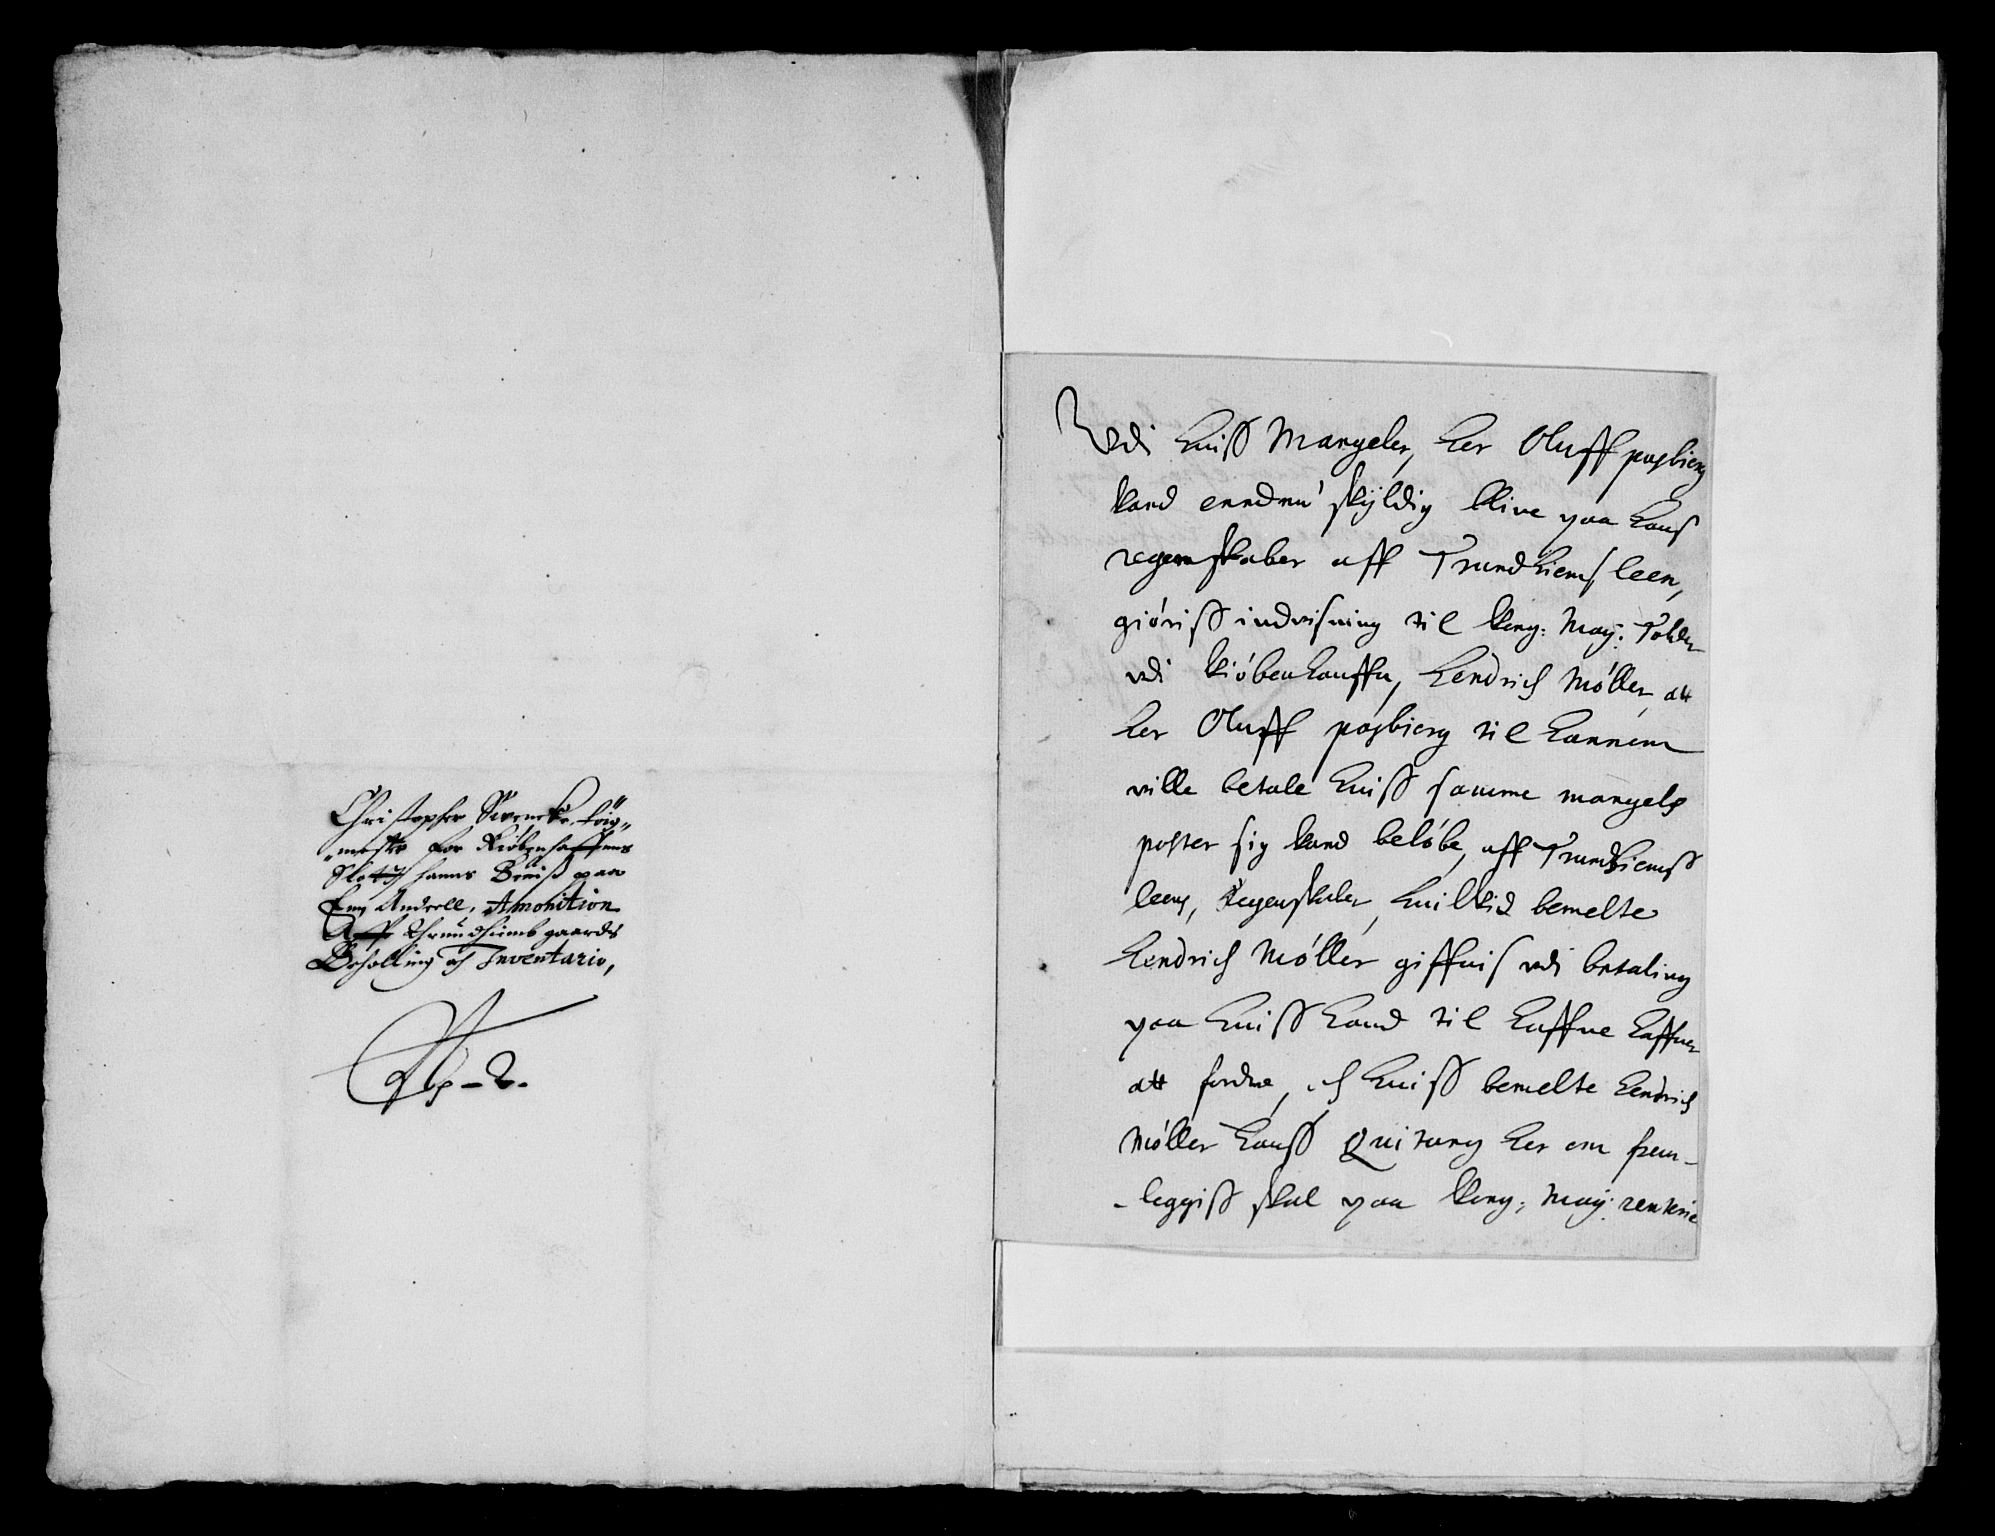 Christopher Swencke, töig-
mester for Kiøbenhaffuens
Slott, hanns Beuiß paa
Amonition
Aff Thrundhiembs gaards
Beholling och Inventario,
Vdi huiß Mangeler, her Oluff passbierg
kand enndnu skyldig bliue paa hans
regennskaber aff Trundhiems leen,
giöriss indvisning til Kong: May: Tolder
vdi kiöbenhauffn, hendrich Möller, att
her Oluff passbierg til hannem
ville betale huiss samme mangels
poster sig kand belöbe, aff Trundhiemss
leens, Regenskaber, huilkid bemelte
hendrich Möller giffuis vdi betaling
paa huiss hand til haffue haffuer
att fordre, och huiss bemelte hendrich
Möller hanss Quitang her om frem-
-leggiss skal paa Kong: May: renterie